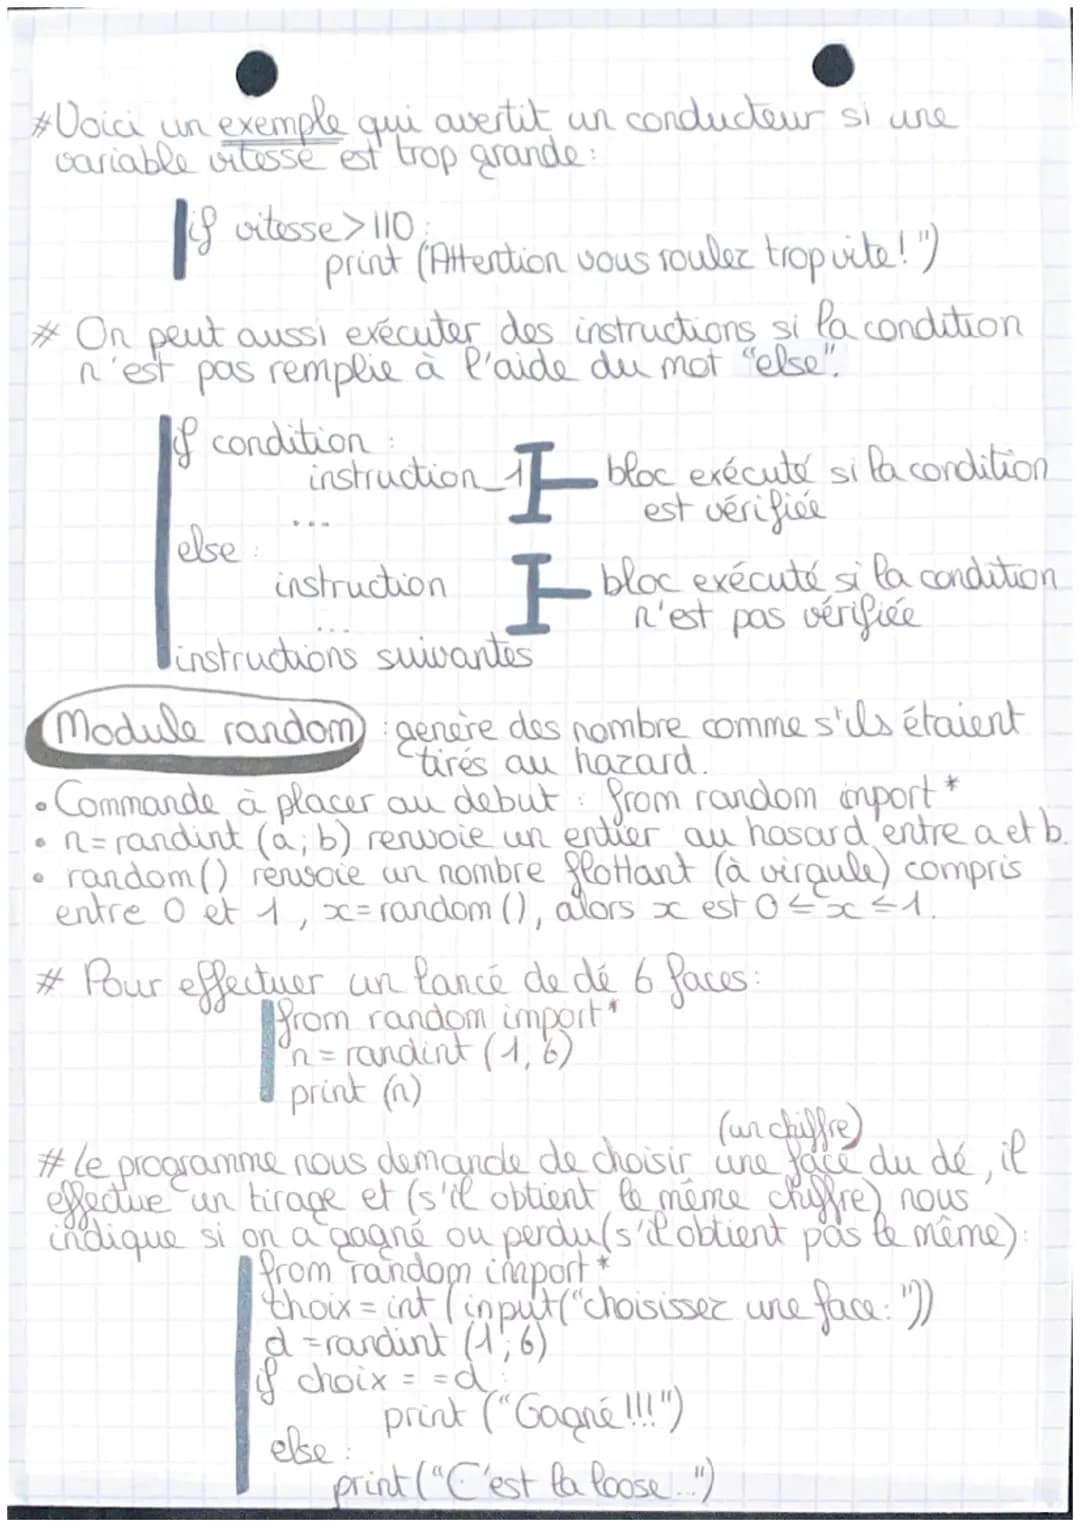 #Voici un exemple qui avertit un conducteur si une
variable vitesse est trop grande :
if vitesse>110 :
print (Attention vous roulez trop vite! ")
# On peut aussi exécuter des instructions si la condition
n'est pas remplie à l'aide du mot "else".
if condition :
instruction_1
bloc exécuté si la condition
est vérifiée
...
else :
instruction
bloc exécuté si la condition
n'est pas vérifiée
...
instructions suivantes
Module random : genère des nombre comme s'ils étaient
tirés au hazard.
• Commande à placer au debut : from random import *
• n=randint (a;b) renvoie un entier au hasard entre a et b.
• random() renvoie un nombre flottant (à virgule) compris
entre 0 et 1, x=random(), alors x est 0≤x≤1.
# Pour effectuer un lancé de dé 6 faces :
from random import *
n = randint (1,6)
print (n)
(un chiffre)
# Le programme nous demande de choisir une face du dé, il
effectue un tirage et (s'il obtient le même chiffre) nous
indique si on a gagné ou perdu (s'il obtient pas le même) :
from random import *
choix = int (input("choisissez une face: "))
d =randint (1;6)
if choix = =d :
print ("Gagné !!!")
else :
print ("C'est la loose...")